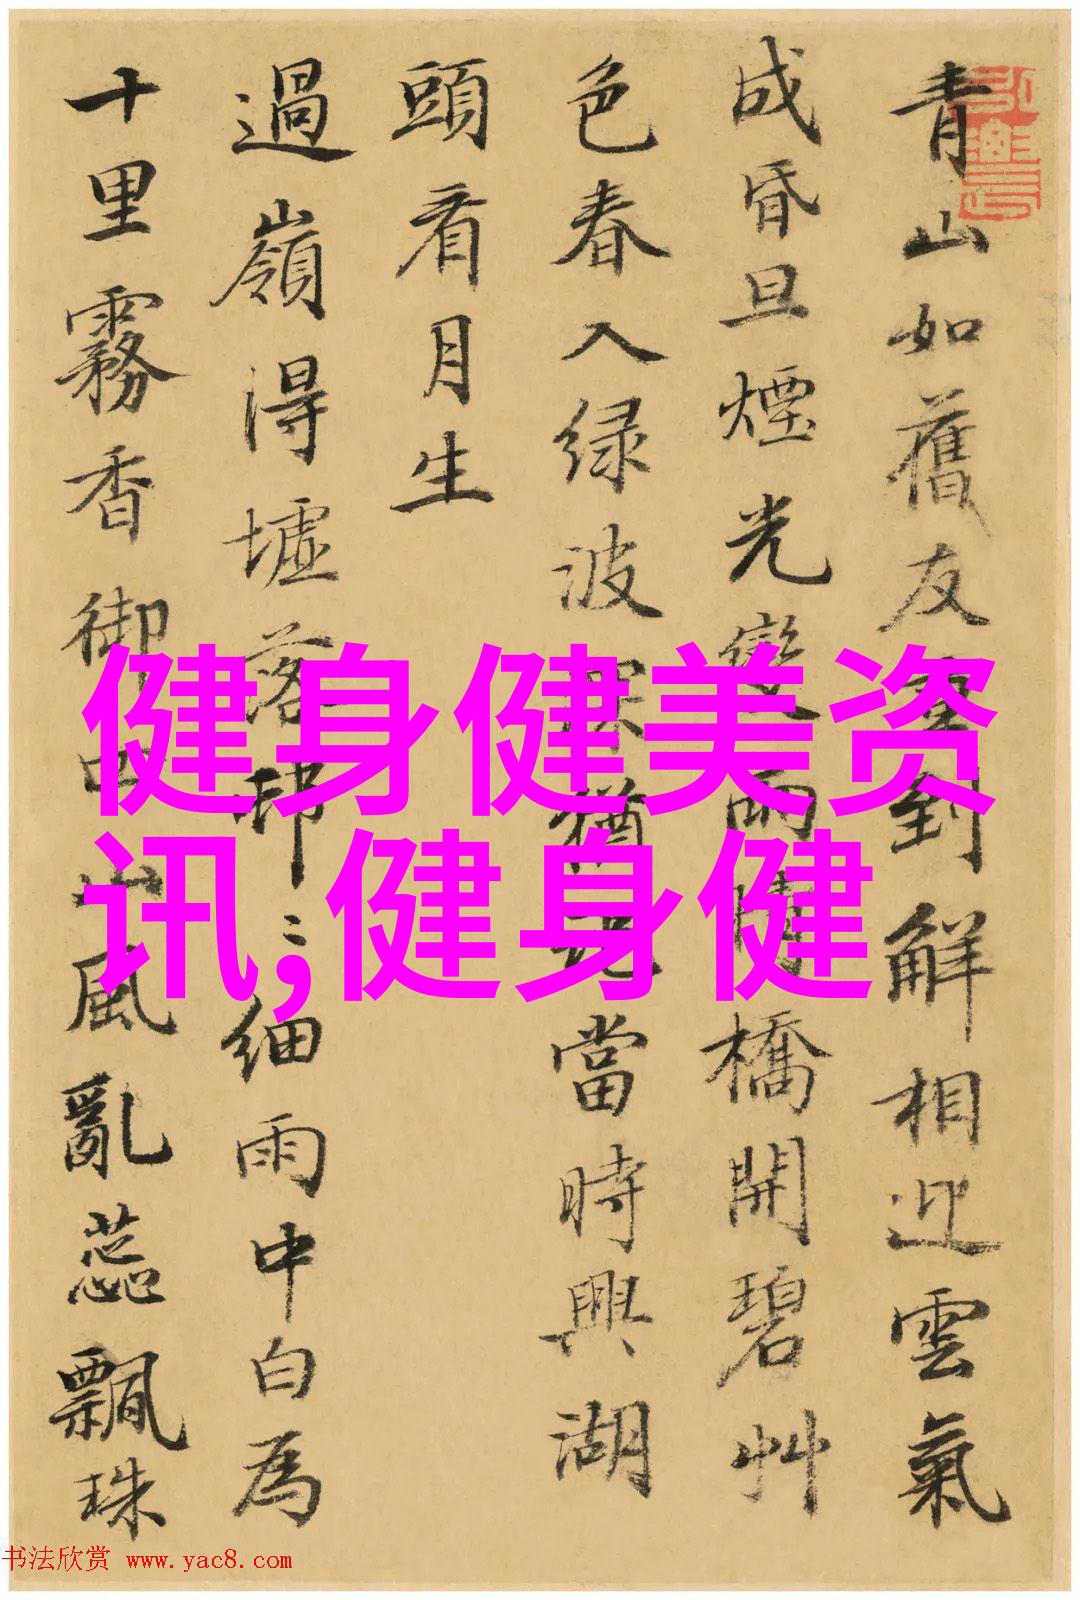 青山如舊友重到解相迎雲氣
成昏旦煙光變雨晴橋開碧艸
色春入绿波深猶記當時興湖
頭看月生
過嶺得墟落邨〻細雨中白為
十里霧香御四山風亂蕊飄珠
健身健美资
讯;健身健
书法欣赏 www.yac8.com